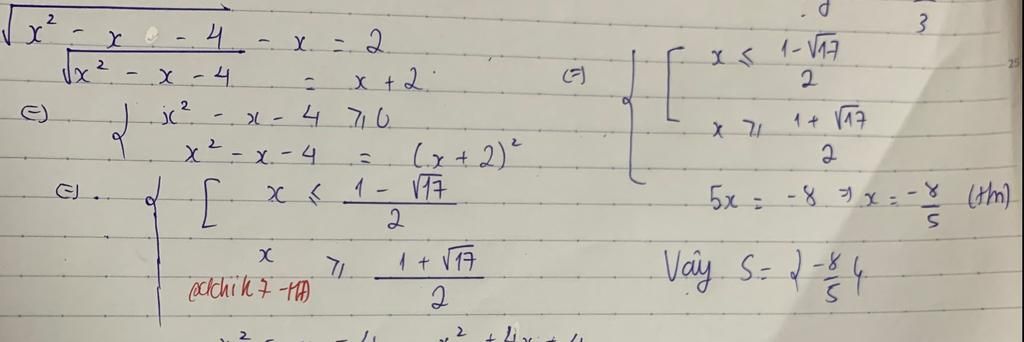 √(x² - x - 4) - x = 2
√(x² - x - 4) = x + 2
(=) { x² - x - 4 ⩾ 0
x² - x - 4 = (x + 2)²
(=) { [ x ⩽ (1 - √17)/2
x ⩾ (1 + √17)/2
(=) { [ x ⩽ (1 - √17)/2
x ⩾ (1 + √17)/2
5x = -8 => x = -8/5 (tm)
Vậy S = { -8/5 }
3
25